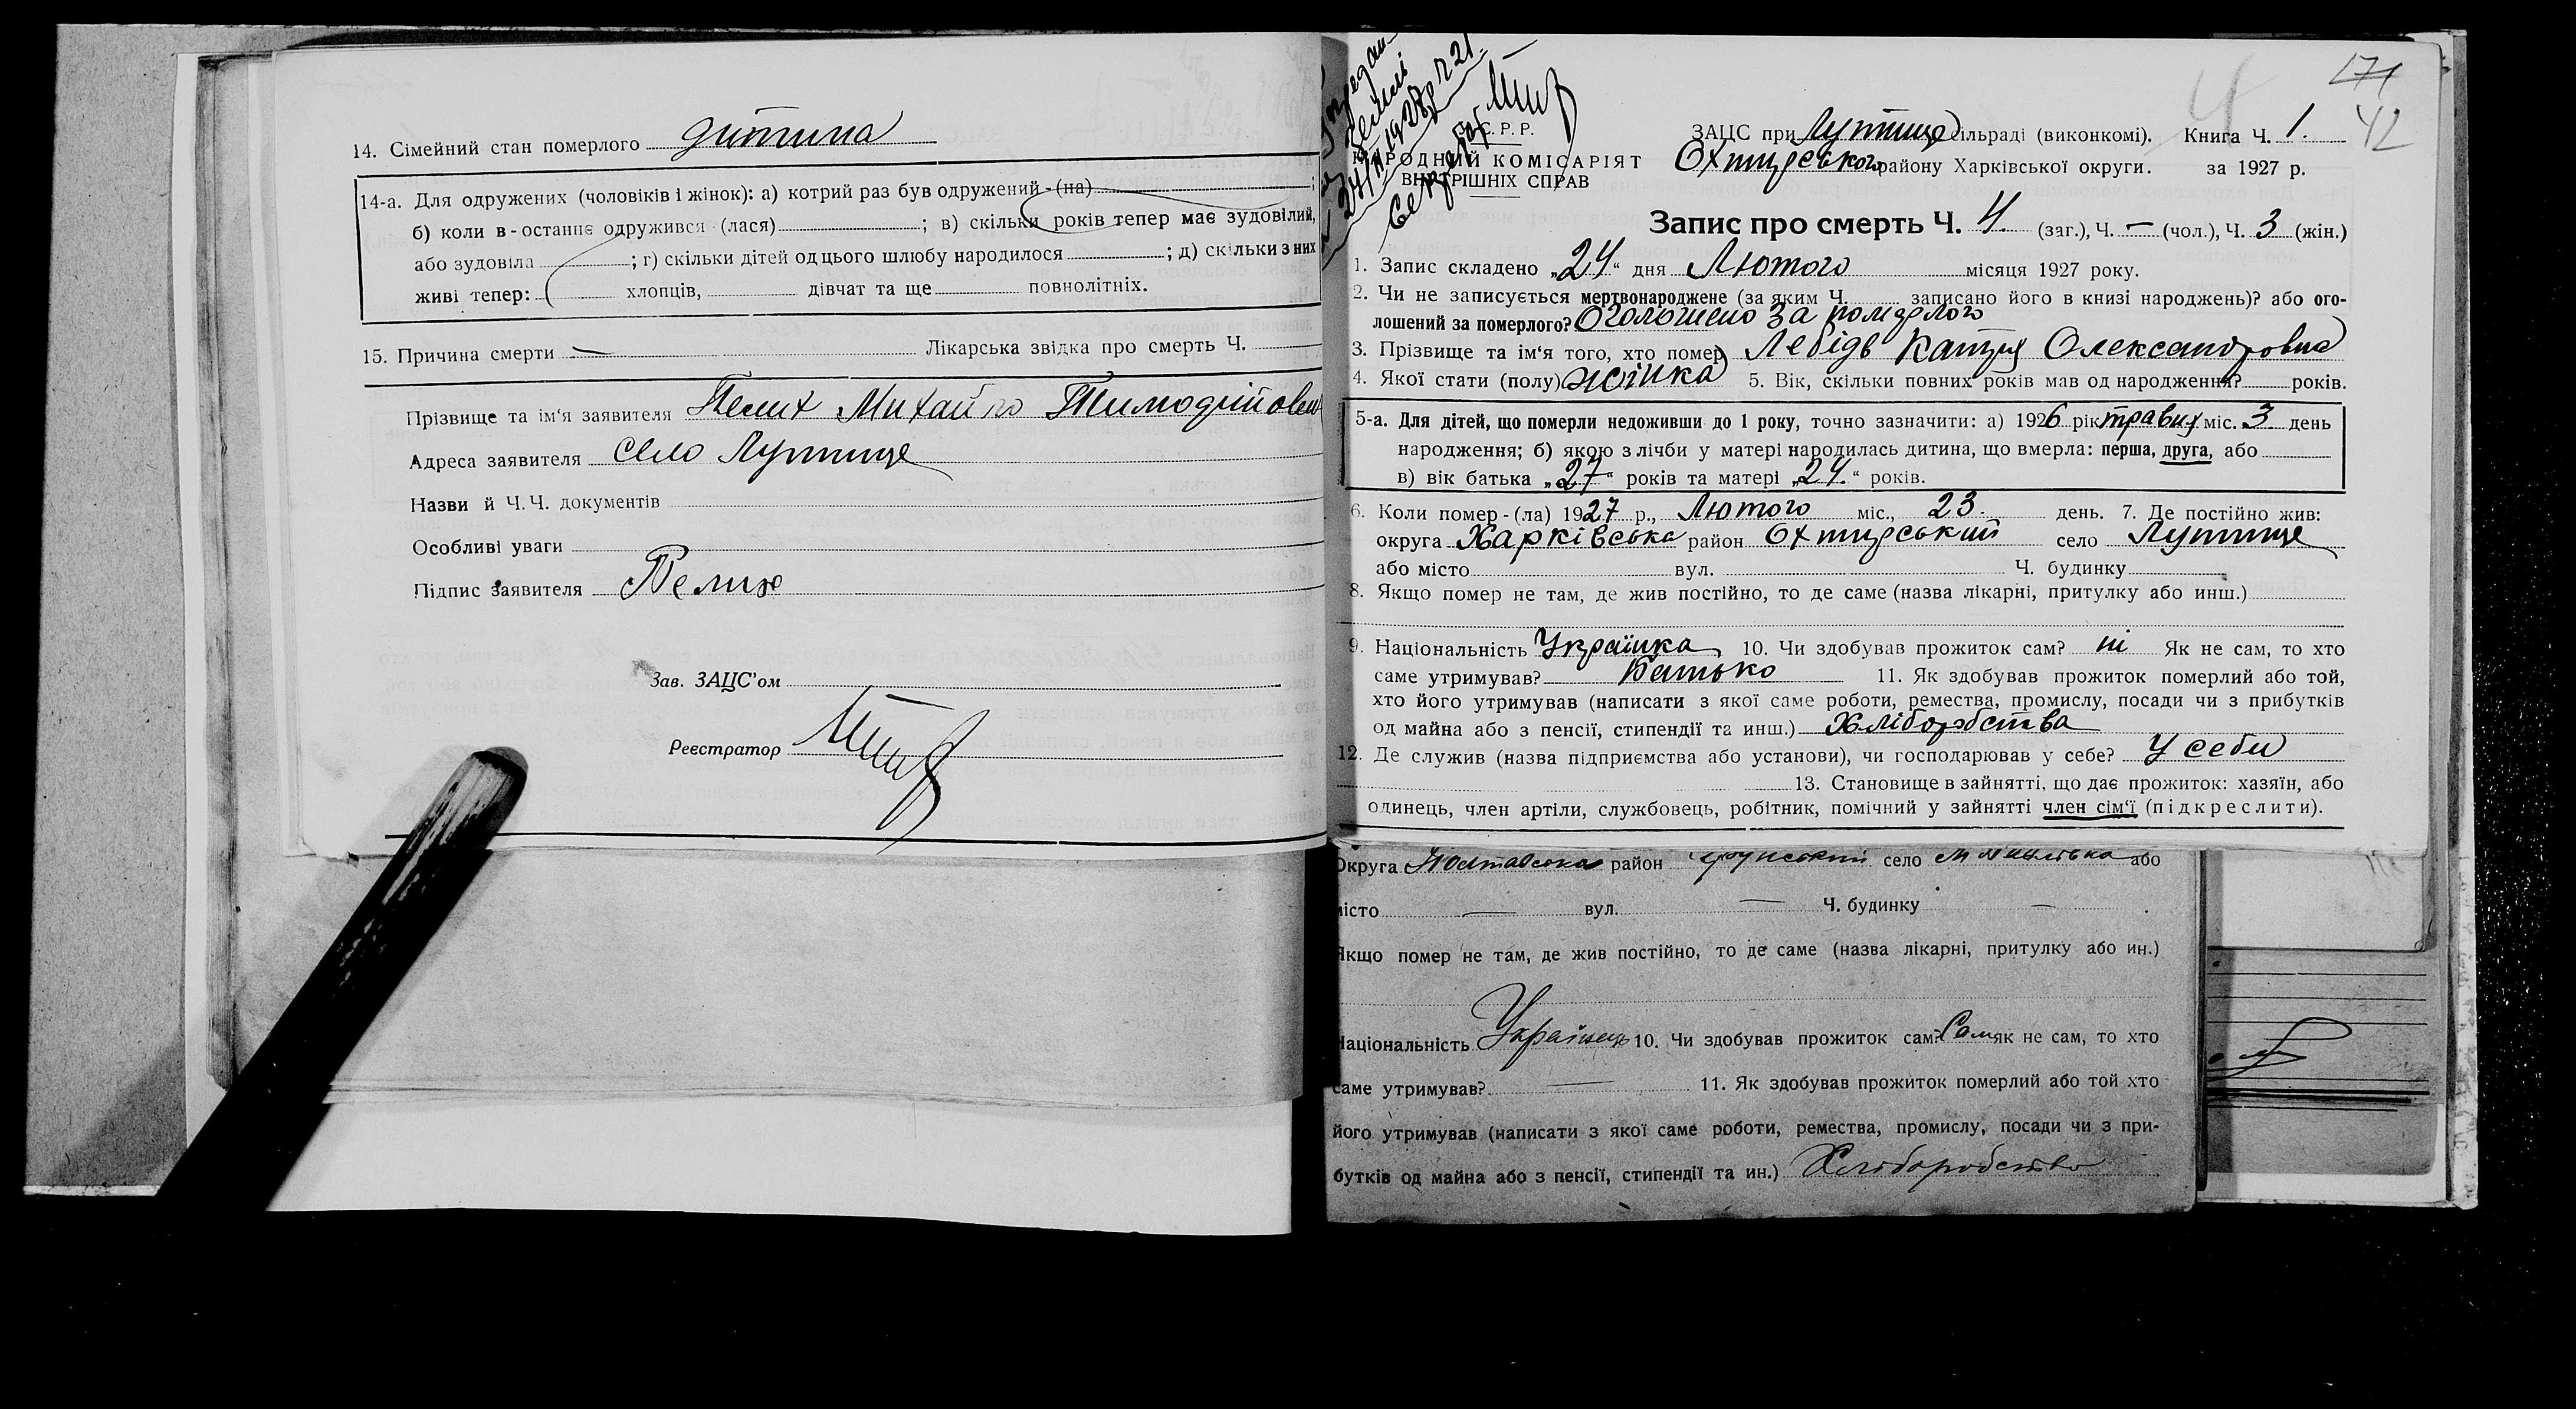 14. Сімейний стан померлого дитина
14-а. Для одружених (чоловіків і жінок): а) котрий раз був одружений-(на)
б) коли в-останнє одружився-(лася) ; в) скільки років тепер має зудовілий,
або зудовіла ; г) скільки дітей од цього шлюбу народилося ; д) скільки з них
живі тепер: хлопців, дівчат та ще повнолітніх.
15. Причина смерти — Лікарська звідка про смерть Ч.
Прізвище та ім'я заявителя Пелих Михайло
Адреса заявителя село Лутище
Назви й Ч.Ч. документів
Особливі уваги
Підпис заявителя Пелих
Зав. ЗАЦС'ом
Реєстратор
171
42
С.Р.Р.
НАРОДНИЙ КОМІСАРІЯТ
ВНУТРІШНІХ СПРАВ
ЗАЦС при Лутище сільраді (виконкомі). Книга Ч. 1.
Охтирського району Харківської округи. за 1927 р.
Запис про смерть Ч. 4. (заг.), Ч. — (чол.), Ч. 3 (жін.)
1. Запис складено „24“ дня Лютого місяця 1927 року.
2. Чи не записується мертвонароджене (за яким Ч. записано його в книзі народжень)? або ого-
лошений за померлого? Оголошено за померлого
3. Прізвище та ім'я того, хто помер Лебідь Катря Олександровна
4. Якої стати (полу) жінка 5. Вік, скільки повних років мав од народження? років.
5-а. Для дітей, що померли недоживши до 1 року, точно зазначити: а) 1926 рік травня міс. 3 день
народження; б) якою з лічби у матері народилась дитина, що вмерла: перша, друга, або
в) вік батька „27“ років та матері „24.“ років.
6. Коли помер-(ла) 1927 р., Лютого міс., 23. день. 7. Де постійно жив:
округа Харківська район Охтирський село Лутище
або місто вул. Ч. будинку
8. Якщо помер не там, де жив постійно, то де саме (назва лікарні, притулку або инш.)
9. Національність Українка 10. Чи здобував прожиток сам? ні Як не сам, то хто
саме утримував? Батько 11. Як здобував прожиток померлий або той,
хто його утримував (написати з якої саме роботи, ремества, промислу, посади чи з прибутків
од майна або з пенсії, стипендії та инш.) Хліборобства
12. Де служив (назва підприємства або установи), чи господарював у себе? у себи
13. Становище в зайнятті, що дає прожиток: хазяїн, або
одинець, член артіли, службовець, робітник, помічний у зайнятті член сім'ї (підкреслити).
Округа Полтавська район село або
місто — вул. — Ч. будинку —
Якщо помер не там, де жив постійно, то де саме (назва лікарні, притулку або ин.)
Національність Українець 10. Чи здобував прожиток сам? Сам як не сам, то хто
саме утримував? — 11. Як здобував прожиток померлий або той хто
його утримував (написати з якої саме роботи, ремества, промислу, посади чи з при-
бутків од майна або з пенсії, стипендії та ин.) Хліборобство